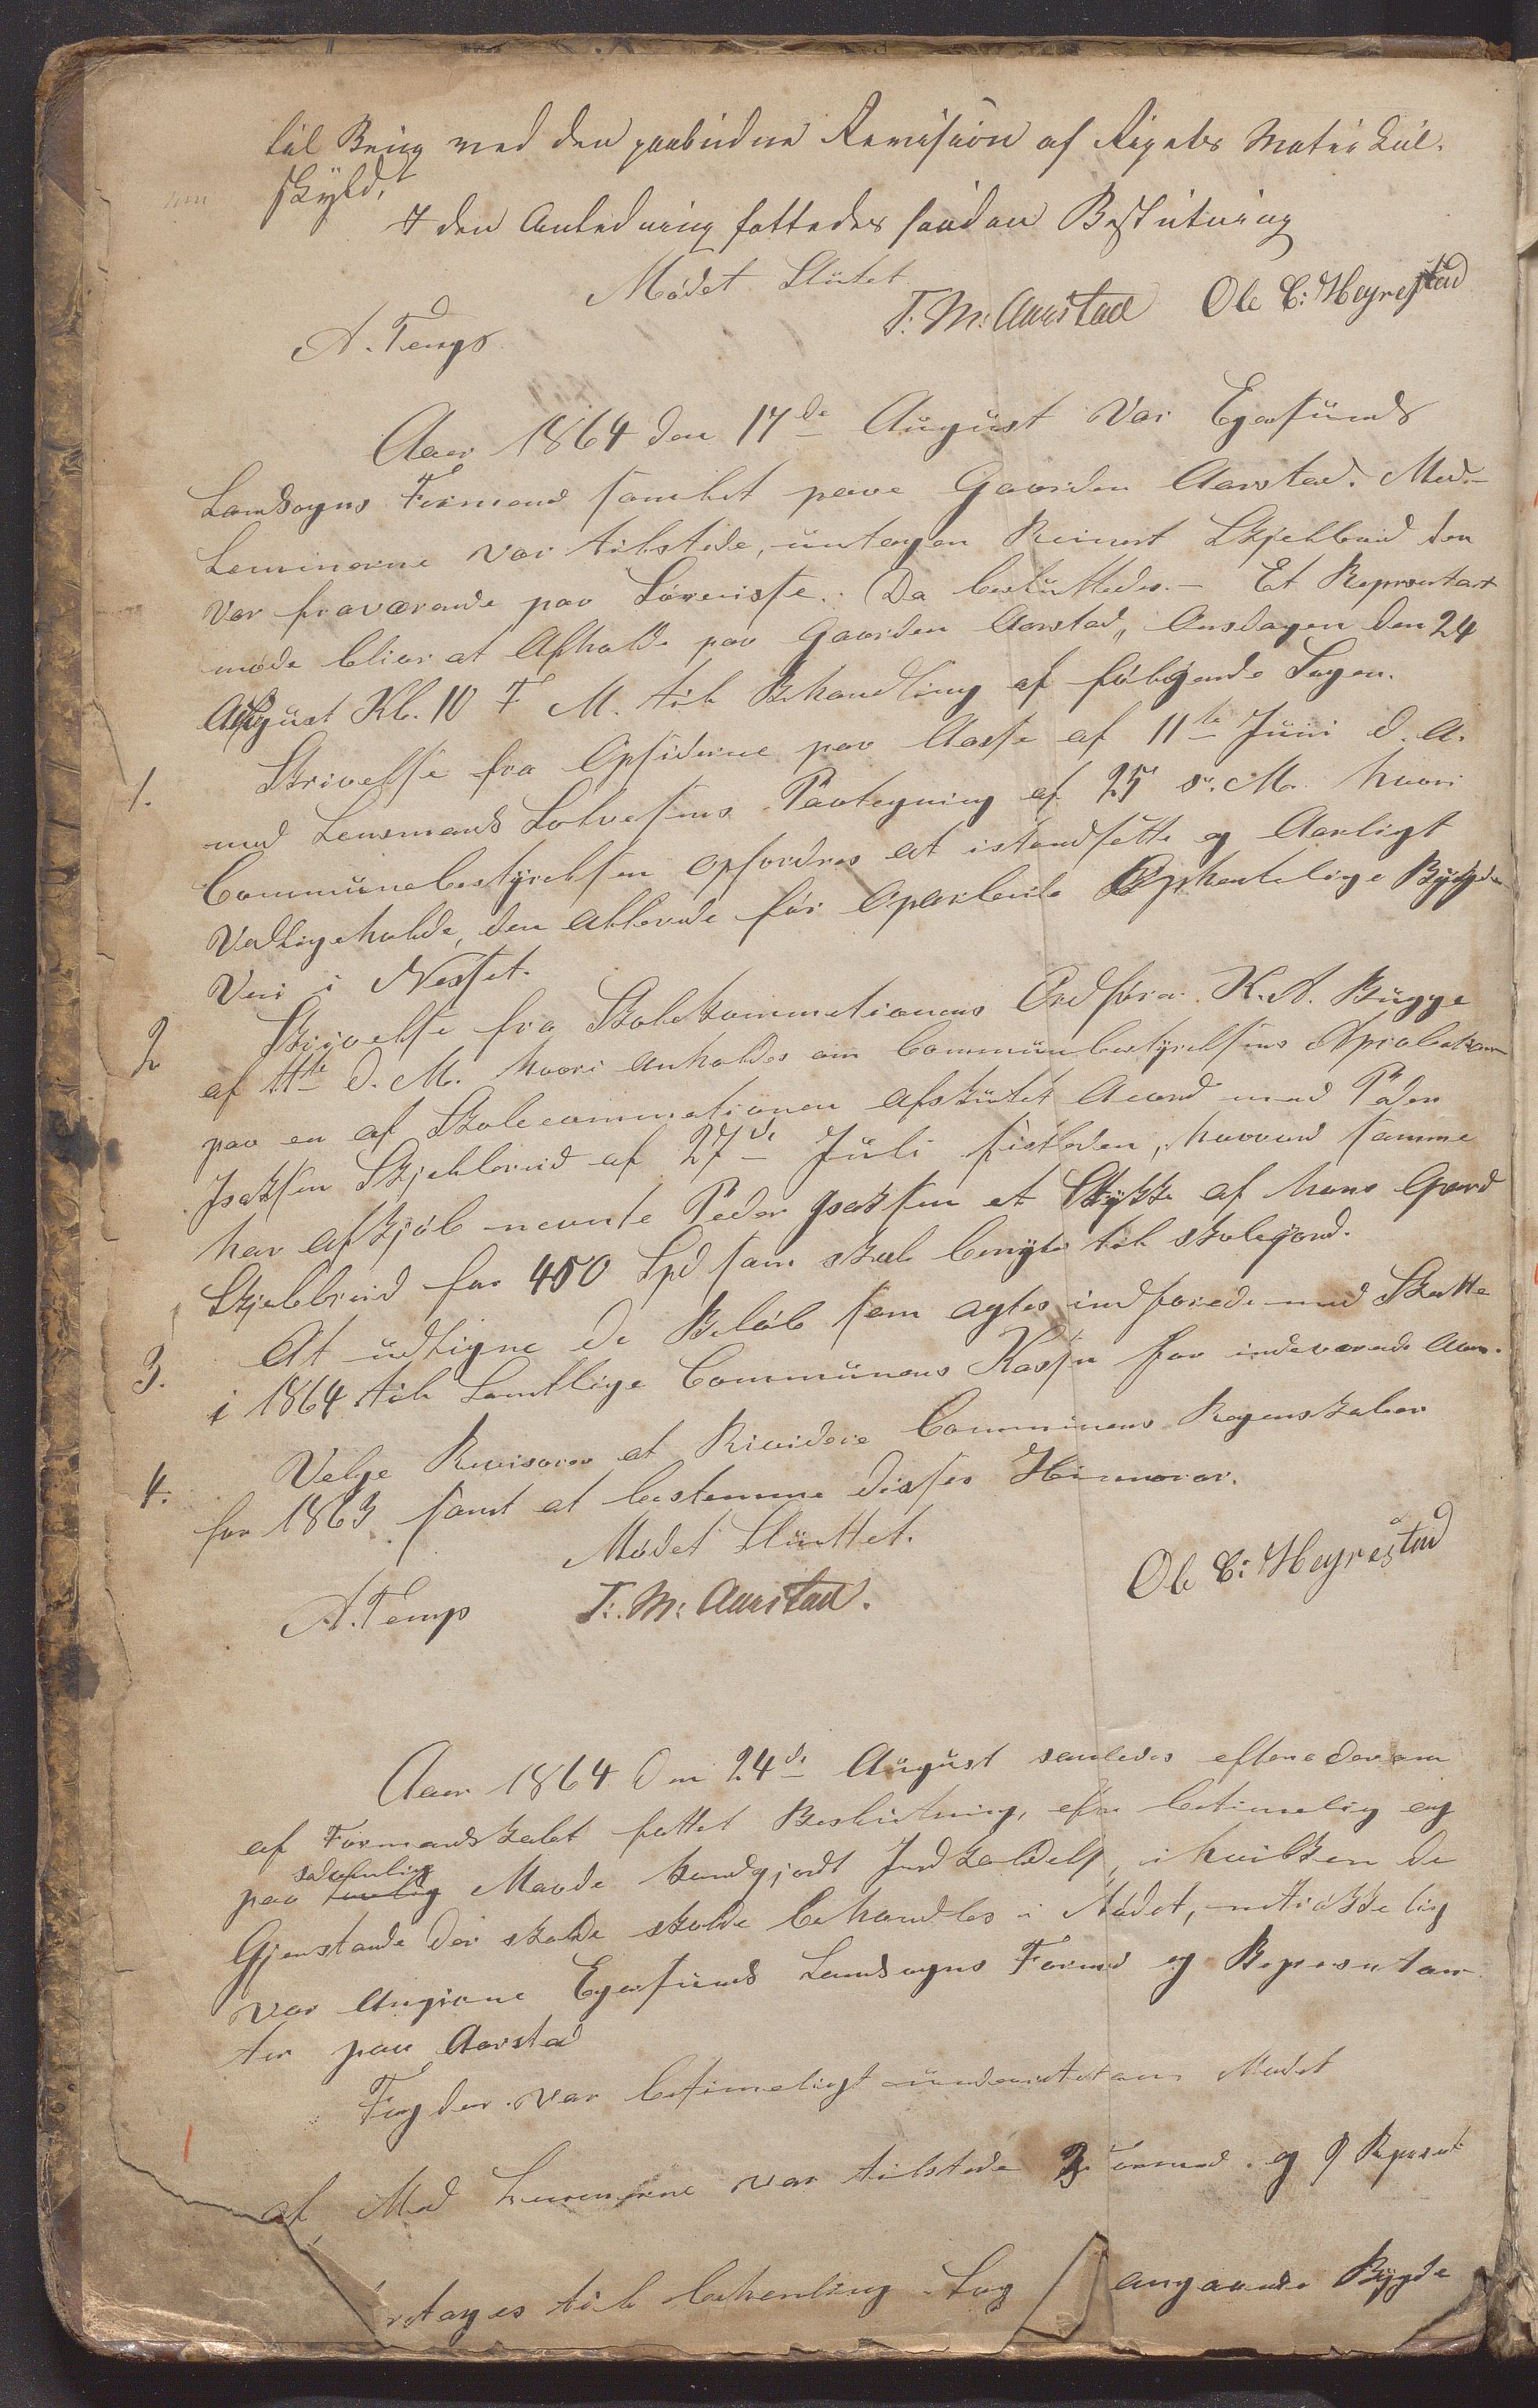 til Brug med den paabudne Revision af Rigets Matrikul-
skyld.
I den Anledning fattedes saadan Beslutning
Mödet Slutet
A. Tengs T. M. Aarstad Ole C: Høyrestad
Aar 1864 den 17de August var Egersunds
Landsogns Formend samlet paa Gaarden Aarstad. Med-
Lemmerne var tilstede, untagen Reinert Skjelbred den
var fraværende paa Söreisse. Da besluttedes.- Et Represntant
møde bliver at Afholde paa Gaarden Aarstad, Onsdagen den 24
August Kl. 10 F M. til Behandling af følgende Sager.
1. Skrivelse fra Opsiderne paa Aase af 11te Juni d. A.
med Lensmand Salvesens Paategning af 25 s. M. hvori
Communebestyrelsen opfordres at istandsette og Aarligt
Vedligeholde, den allerede før Oparbeide Bygde
Vei i Nesset.
2 Skrivelse fra Skolekommetionens Ordfører K. A. Bugge
af 11te d. M. hvori anholdes om Communbestyrelsens Aprobation
paa en af Skolecommetionen afsluttet Acord med Peder
Isaksen Skjelbreid af 27de Juli sistleden, hvorved samme
har afkjöb nevnte Peder Isaksen et Stykke af hans Gaard
Skjelbreid for 450 Spd som skal benytes til skolejord.
3. At udligne de Belöb som agtes indforede med Skatte
i 1864 til Samtlige Communens Kasser for indeværende Aar.
4. Velge Revisorer at Rividere Communens Regenskaber
for 1863 samt at bestemme disses Hinnorar.
Mödet Sluttet.
A. Tengs T. M: Aarstad. Ole C: Høyrestad
Aar 1864 den 24de August samledes efter derom
af Formandskabet fattet Beslutning, efter betimelig og
paa sedvanlig Maade kundgjordt Indkaldelse, i hvilken de
Gjenstande der skulde skulde behandles i Mödet,
var Angivne Egersunds Landsogns Formd og Represntan
ter paa Aarstad
Fogden var betimeligt underrettet om Mødet
af Med Lemmerne var tilstede 3 Formend. og 9 Reprsnt
etages til behenling Sag 1 angaaende Bygde